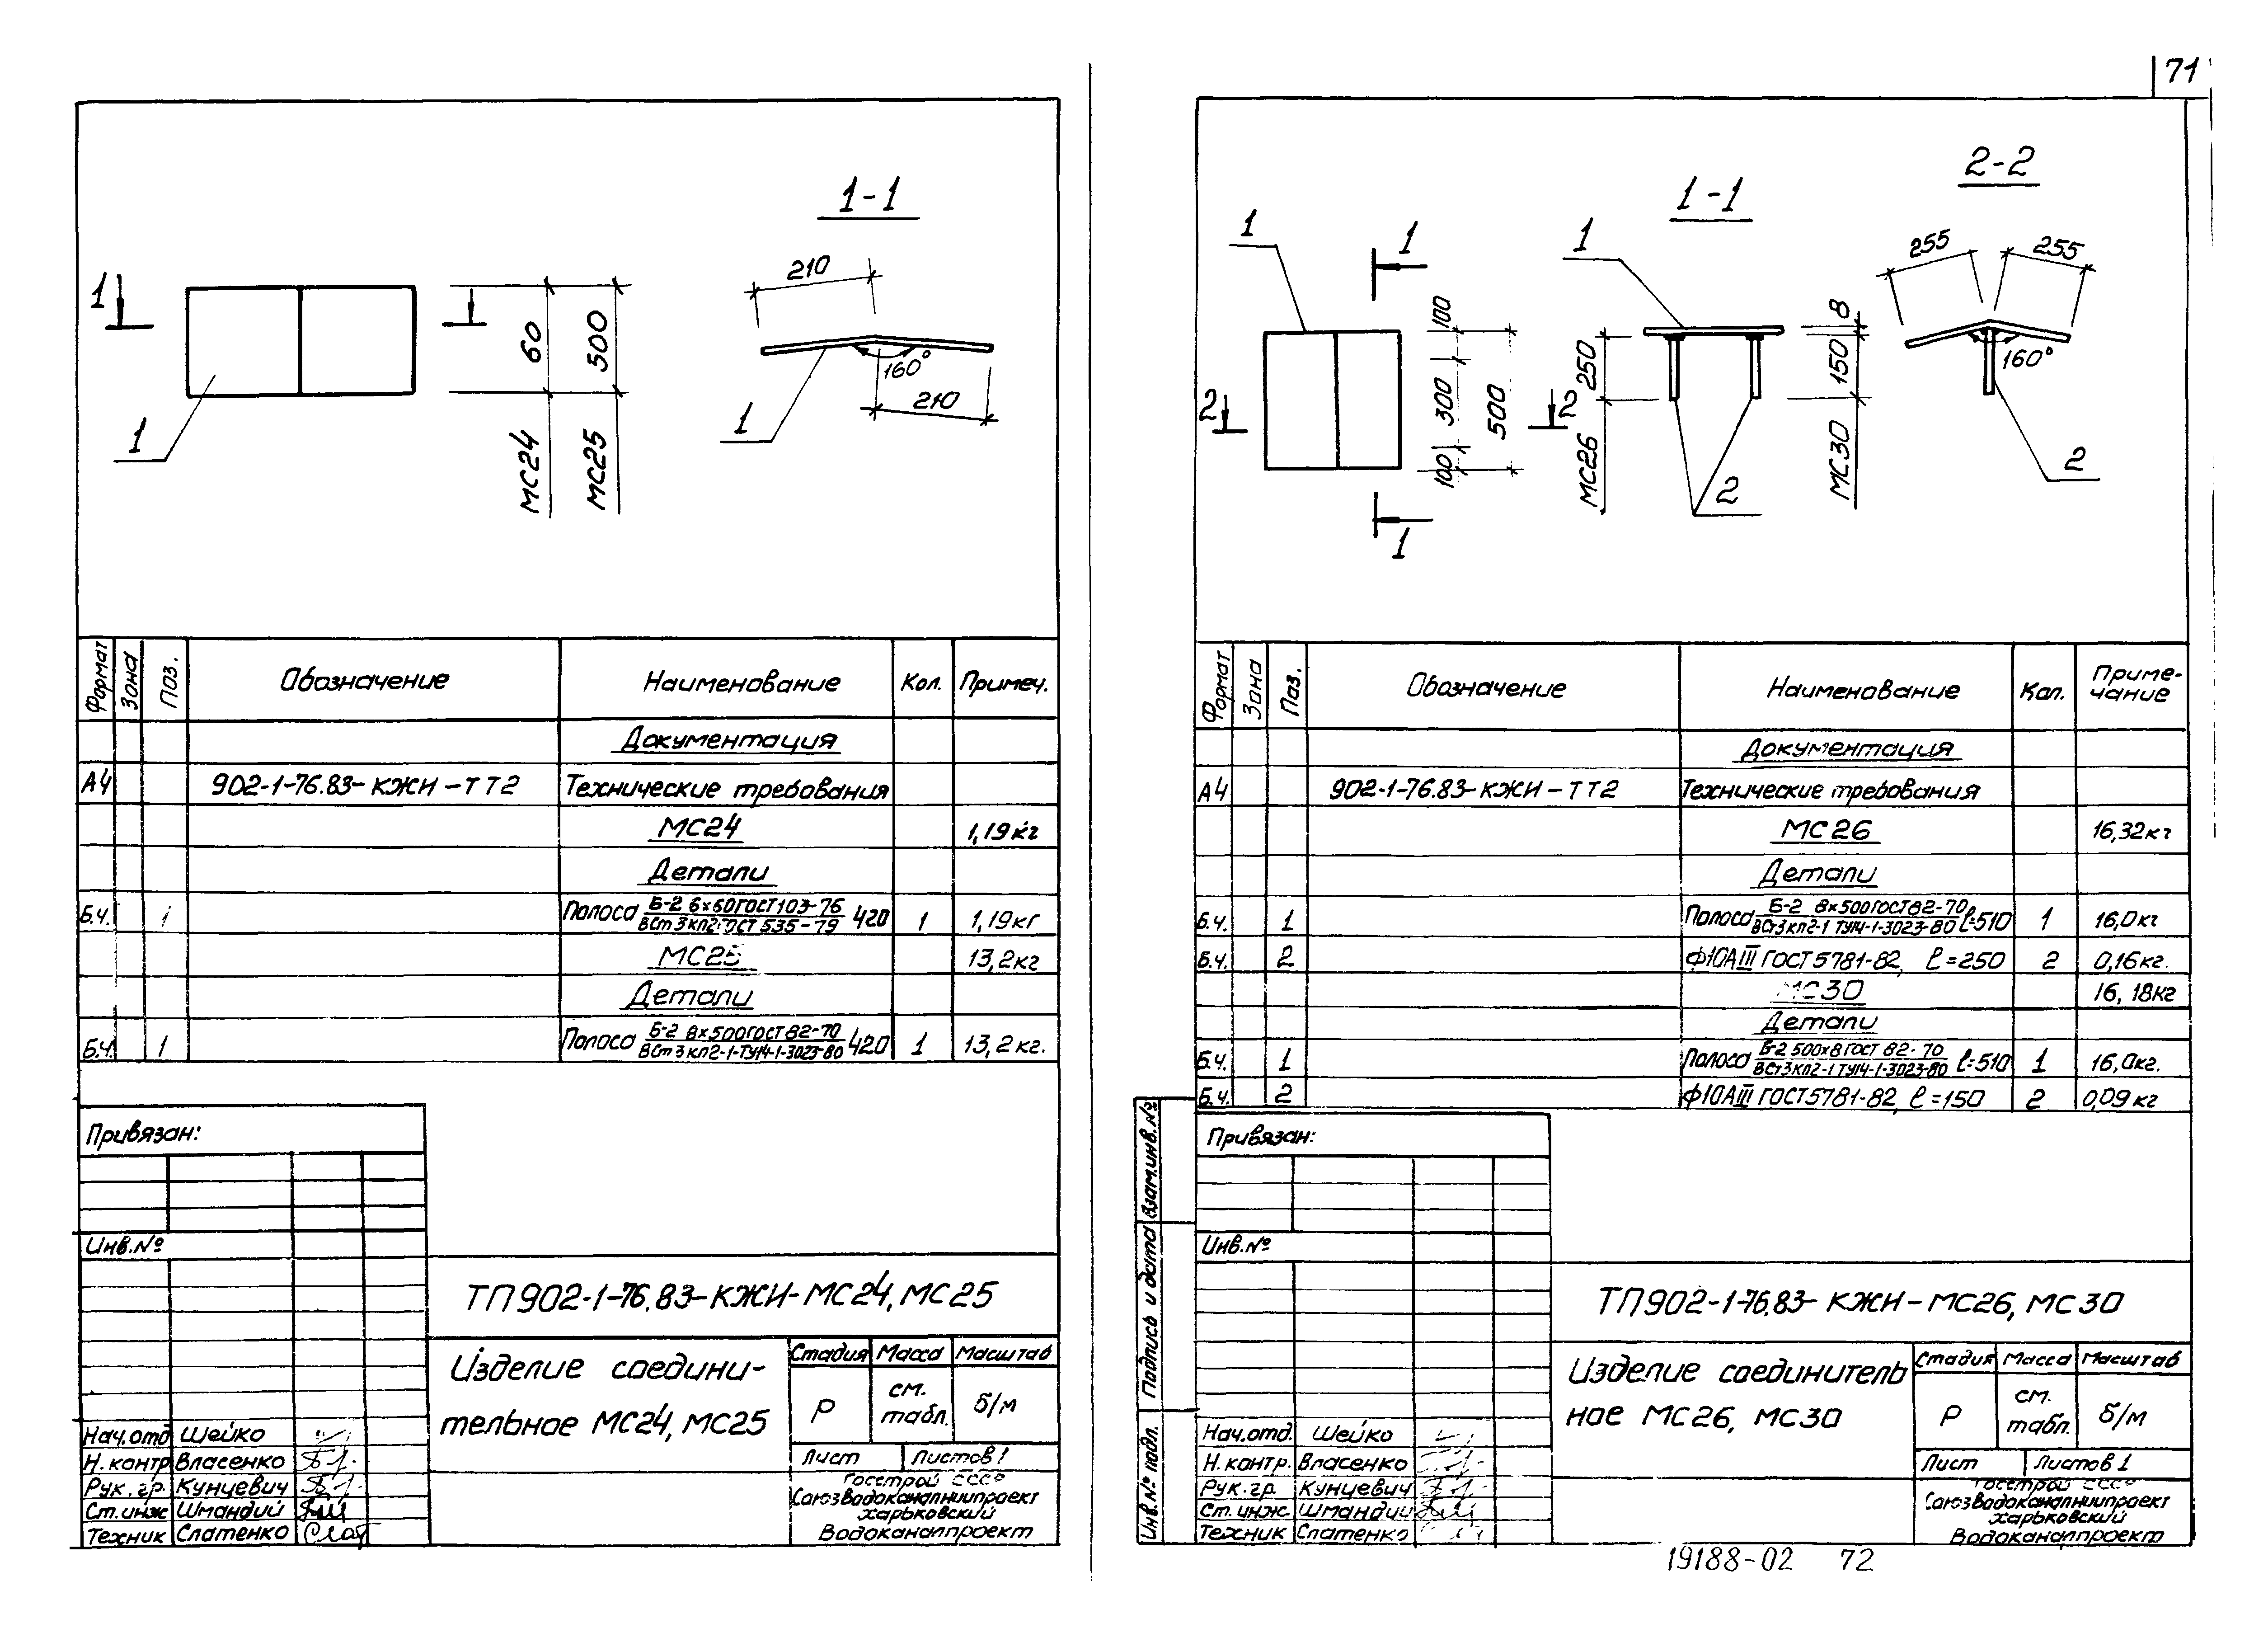 71
1-1
1
210
160°
210
1
1
60
500
МС24
МС25
Формат Зона Поз. Обозначение Наименование Кол. Примеч.
Документация
А4 902-1-76.83-КЖИ-ТТ2 Технические требования
МС24 1,19кг
Детали
Б.ч. 1 Полоса Б-2 6×60ГОСТ103-76 420 1 1,19кг
ВСт3кп2ГОСТ 535-79
МС25 13,2кг
Детали
Б.ч. 1 Полоса Б-2 8×500ГОСТ82-70 420 1 13,2кг.
ВСт3кп2-1-ТУ14-1-3023-80
Привязан:
Инв.№
ТП902-1-76.83-КЖИ-МС24,МС25
Изделие соедини-
тельное МС24, МС25
Стадия Масса Масштаб
Р см. табл. б/м
Лист Листов 1
Госстрой СССР
Союзводоканалниипроект
Харьковский
Водоканалпроект
Нач.отд Шейко
Н.контр Власенко
Рук.гр. Кунцевич
Ст.инж Шмандий
Техник Слатенко
1-1
2-2
1
1
1
1
2
2
100
300
100
500
250
МС26
2
8
150
МС30
255
255
160°
2
Формат Зона Поз. Обозначение Наименование Кол. Приме-
чание
Документация
А4 902-1-76.83-КЖИ-ТТ2 Технические требования
МС26 16,32кг
Детали
Б.ч. 1 Полоса Б-2 8×500ГОСТ82-70 ℓ=510 1 16,0кг
ВСт3кп2-1 ТУ14-1-3023-80
Б.ч. 2 Ф10АIII ГОСТ5781-82, ℓ=250 2 0,16кг.
МС30 16,18кг
Детали
Б.ч. 1 Полоса Б-2 500×8ГОСТ 82-70 ℓ=510 1 16,0кг.
ВСт3кп2-1 ТУ14-1-3023-80
Б.ч. 2 Ф10АIII ГОСТ5781-82, ℓ=150 2 0,09кг
Привязан:
Инв.№
Взам.инв.№
Подпись и дата
Инв.№ подл.
ТП902-1-76.83-КЖИ-МС26, МС30
Изделие соединитель
ное МС26, МС30
Стадия Масса Масштаб
Р см. табл. б/м
Лист Листов 1
Госстрой СССР
Союзводоканалниипроект
Харьковский
Водоканалпроект
Нач.отд. Шейко
Н.контр. Власенко
Рук.гр. Кунцевич
Ст.инж. Шмандий
Техник Слатенко
19188-02 72